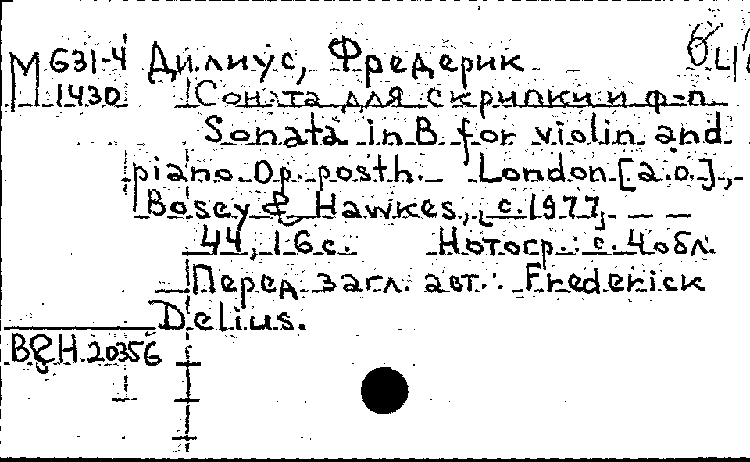 М 631-4 Дилиус, Фредерик
1430 Соната для скрипки и ф-п.
Sonata in B for violin and
piano Op. posth. London [a.o.],
Bosey & Hawkes, c.1977,
44, 16 с. Нотогр.: с. 4 обл.
Перед загл. авт.: Frederick
Delius.
B&H.20356